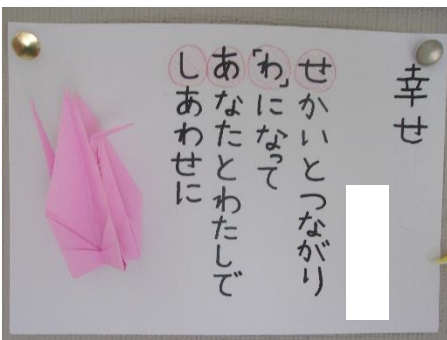 幸せ
せかいとつながり
「わ」になって
あなたとわたしで
しあわせに